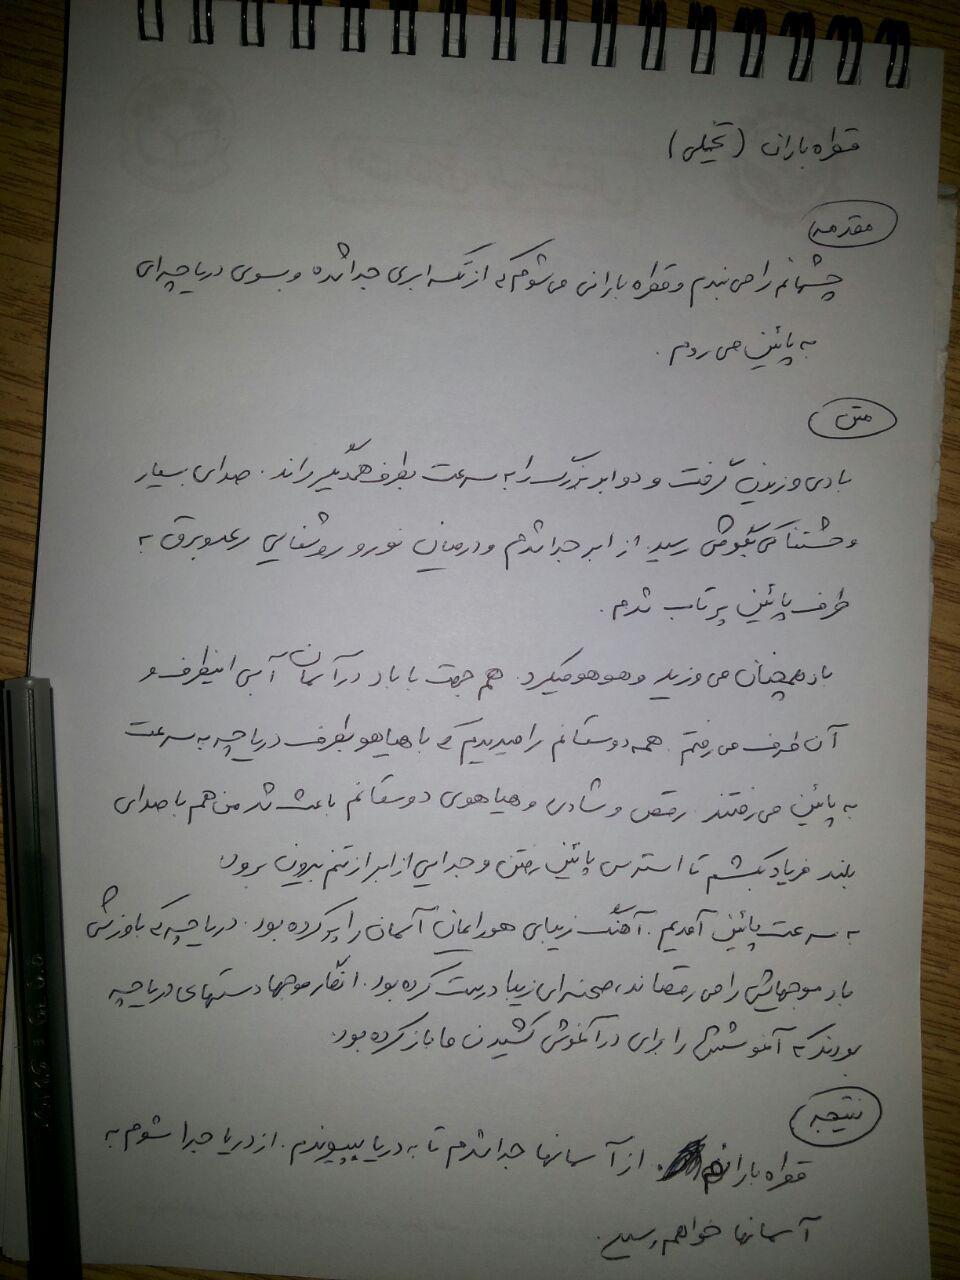 قطره باران (تخیلی)
مقدمه
چشمانم را می بندم و قطره بارانی می شوم که از تکه ابری جدا شده و بسوی دریاچه ای
به پائین می روم .
متن
بادی وزیدن گرفت و دو ابر بزرگ را به سرعت بطرف همدیگر راند . صدای بسیار
وحشتناکی بگوش رسید . از ابر جدا شدم و درمیان نور و روشنایی رعد و برق به
طرف پائین پرتاب شدم .
باد همچنان می وزید و هوهو میکرد . هم جهت با باد در آسمان آبی اینطرف و
آن طرف می رفتم . همه دوستانم را میدیدم که با هیاهو بطرف دریاچه به سرعت
به پائین می رفتند . رقص و شادی و هیاهوی دوستانم باعث شد من هم با صدای
بلند فریاد بکشم تا استرس پائین رفتن و جدایی از ابر از تنم بیرون برود .
به سرعت پائین آمدیم . آهنگ زیبای هورایمان آسمان را پر کرده بود . دریاچه که با وزش
باد موجهایش را می رقصاند ، صحنه ای زیبا درست کرده بود . انگار موجها دستهای دریاچه
بودند که آغوشش را برای در آغوش کشیدن ما باز کرده بود .
نتیجه
قطره بارانم . از آسمانها جدا شدم تا به دریا بپیوندم . از دریا جدا شوم به
آسمانها خواهم رسید .